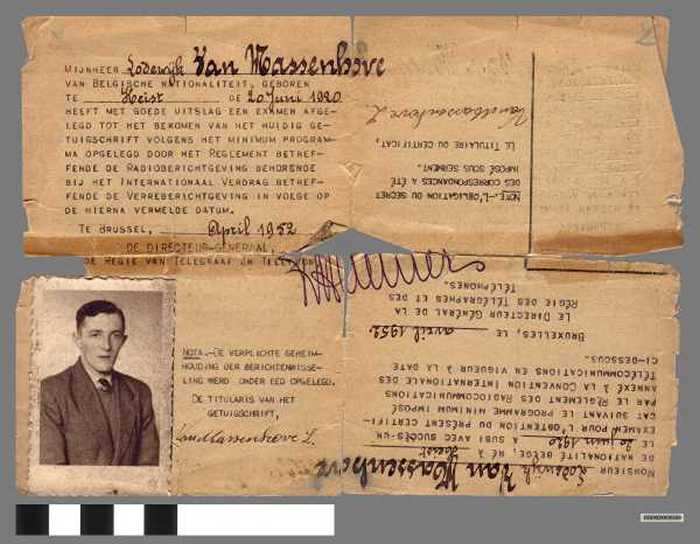 Mijnheer Lodewijk Van Massenhove
van Belgische nationaliteit, geboren
te Heist de 20 Juni 1920
heeft met goede uitslag een examen afge-
legd tot het bekomen van het huidig ge-
tuigschrift volgens het minimum program-
ma opgelegd door het Reglement betref-
fende de Radioberichtgeving behorende
bij het Internationaal Verdrag betref-
fende de Verreberichtgeving in voege op
de hierna vermelde datum.
Te Brussel, April 1952
De Directeur-Generaal
de Regie van Telegraaf en Telefoon
Nota.-De verplichte geheim-
houding der berichtenwisse-
ling werd onder eed opgelegd.
De titularis van het
getuigschrift,
VanMassenhove L.
Monsieur Lodewijk Van Massenhove
de nationalité belge, né à Heist
le 20 juin 1920 a subi avec succès un
examen pour l'obtention du present certifi-
cat suivant le programme minimum imposé
par le Règlement des Radiocommunications
annexé à la Convention Internationale des
Télécommunications en vigueur à la date
ci-dessous.
Bruxelles, le avril 1952
Le Directeur Général de la
Régie des Télégraphes et des
Téléphones.
Note.-L'obligation du secret
des correspondances a été
imposé sous serment.
Le Titulaire du certificat,
VanMassenhove L.